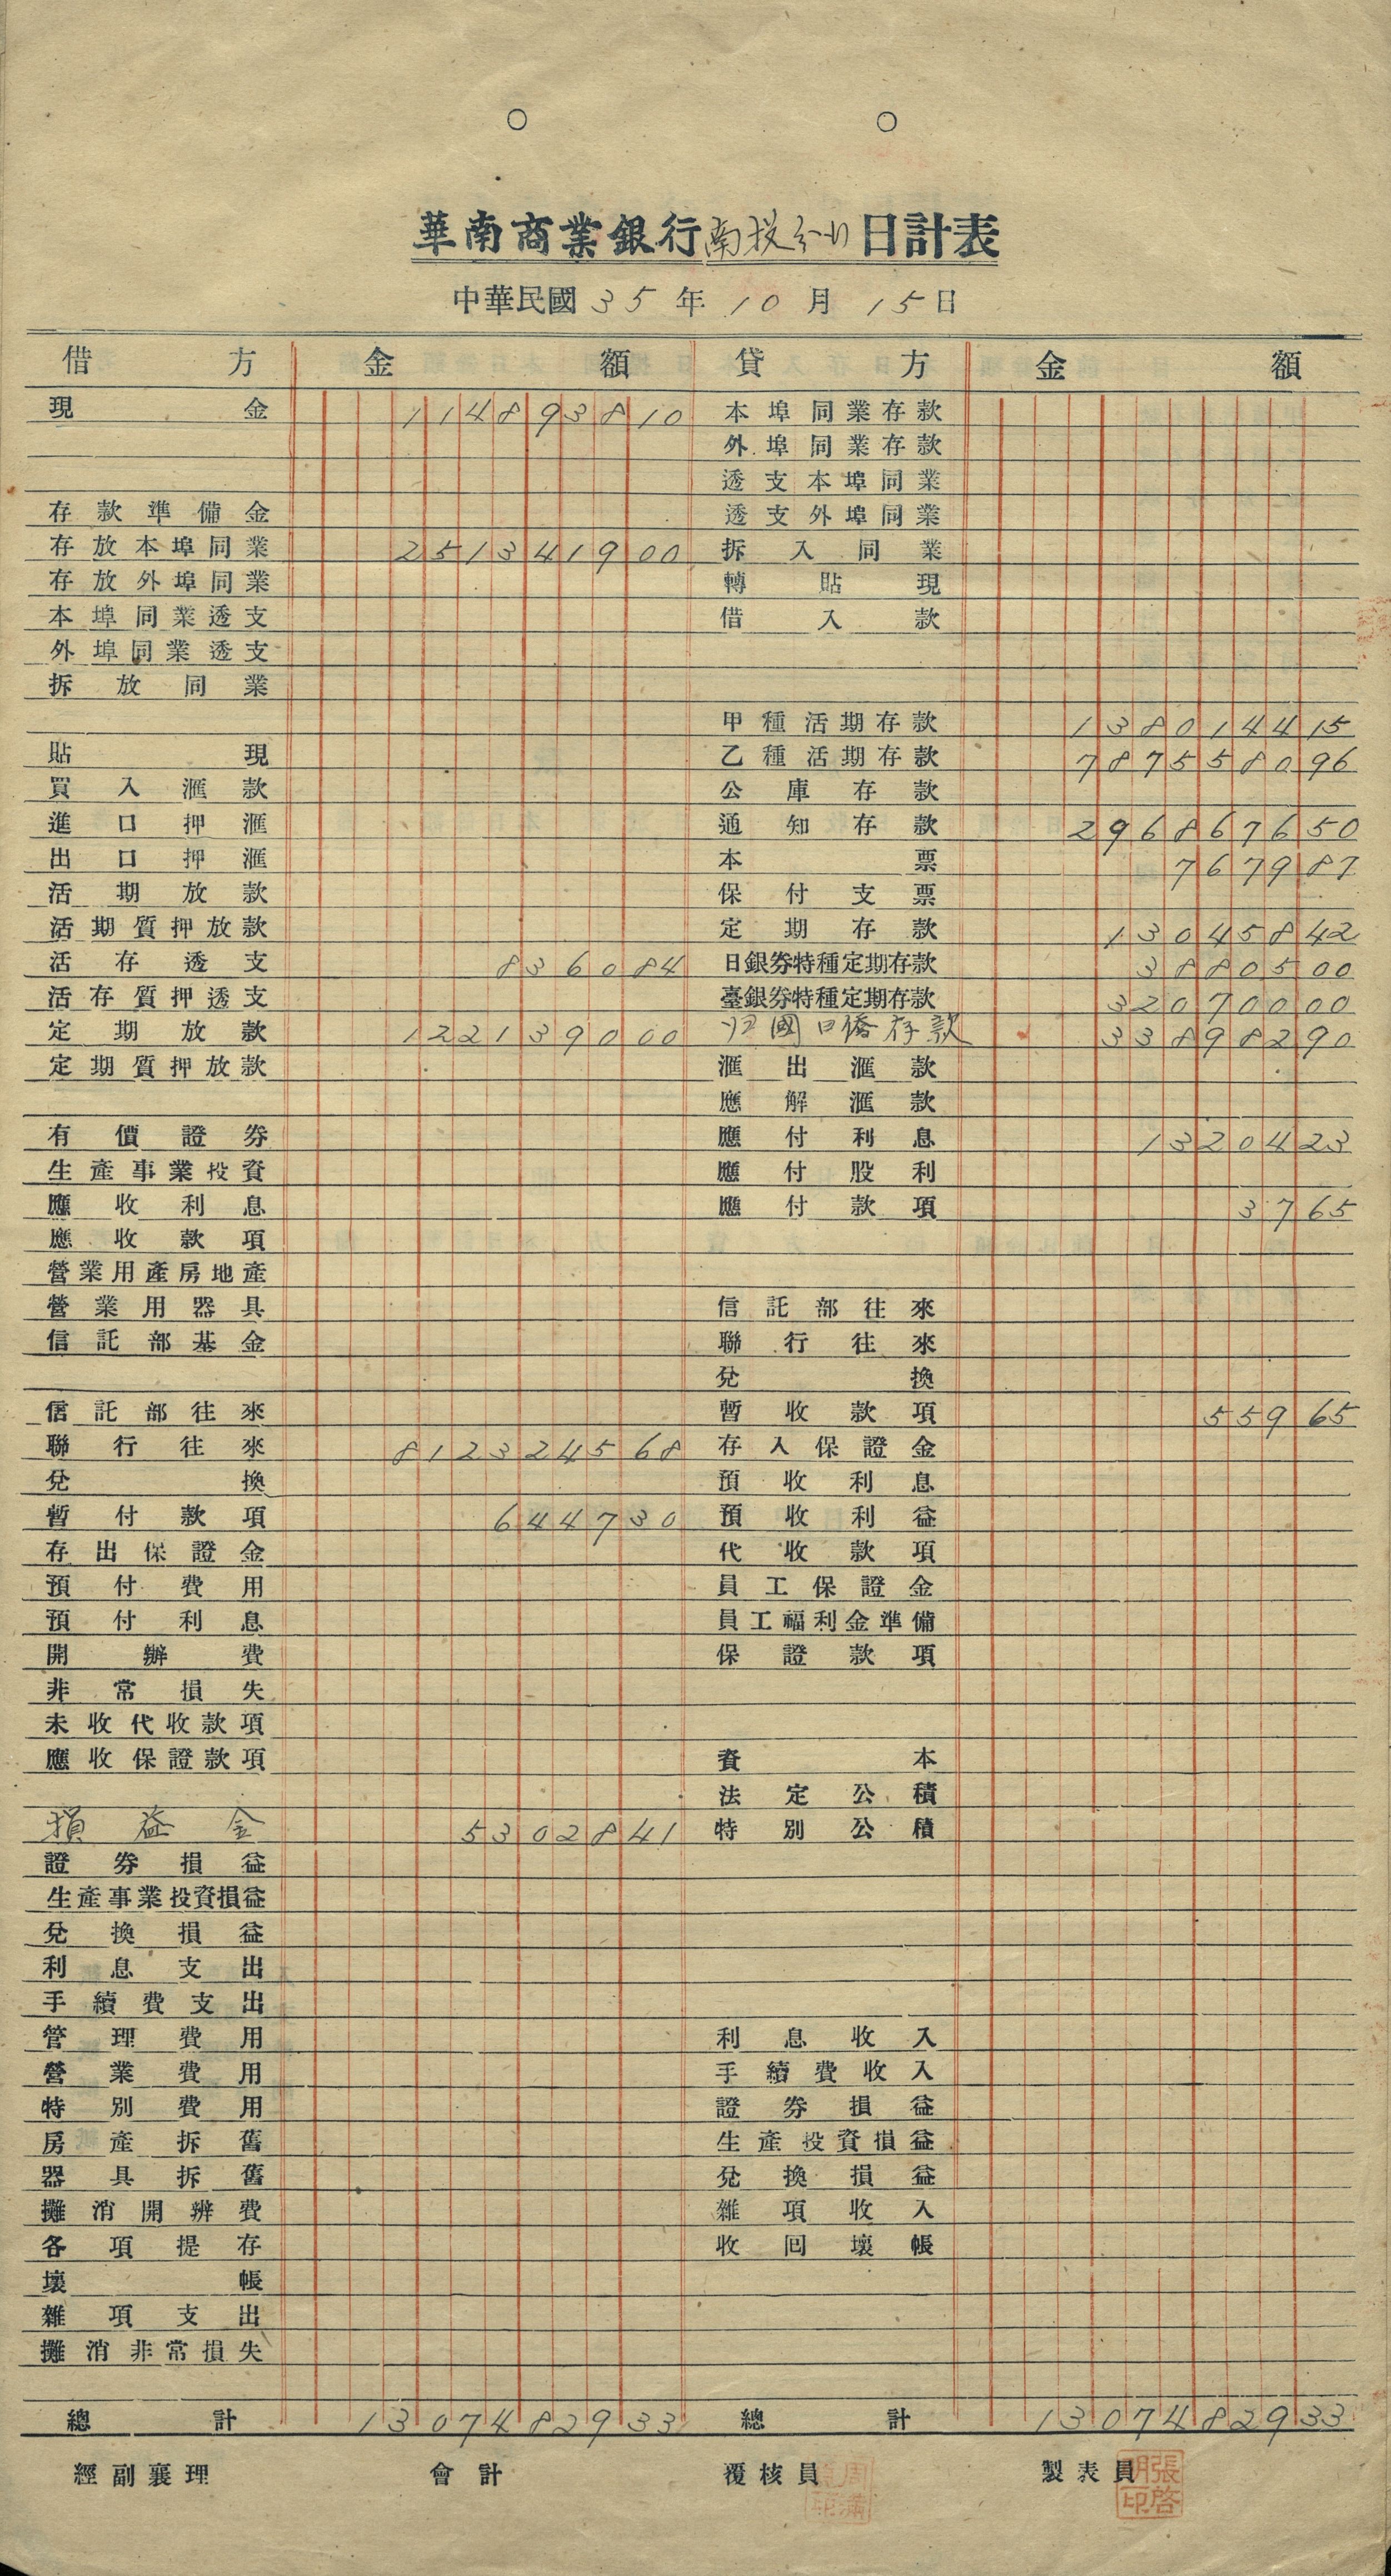 華南商業銀行南投分行日計表
中華民國35年10月15日
借方 金額 貸方 金額
現金 114893810 本埠同業存款
外埠同業存款
透支本埠同業
存款準備金 透支外埠同業
存放本埠同業 251341900 拆入同業
存放外埠同業 轉貼現
本埠同業透支 借入款
外埠同業透支
拆放同業
甲種活期存款 138014415
貼現 乙種活期存款 787558096
買入滙款 公庫存款
進口押滙 通知存款 296867650
出口押滙 本票 767987
活期放款 保付支票
活期質押放款 定期存款 13045842
活存透支 836084 日銀券特種定期存款 3880500
活存質押透支 臺銀券特種定期存款 32070000
定期放款 122139000 归國日僑存款 33898290
定期質押放款 滙出滙款
應解滙款
有價證券 應付利息 1320423
生產事業投資 應付股利
應收利息 應付款項 3765
應收款項
營業用產房地產
營業用器具 信託部往來
信託部基金 聯行往來
兌換
信託部往來 暫收款項 55965
聯行往來 812324568 存入保證金
兌換 預收利息
暫付款項 644730 預收利益
存出保證金 代收款項
預付費用 員工保證金
預付利息 員工福利金準備
開辦費 保證款項
非常損失
未收代收款項
應收保證款項 資本
法定公積
損益金 5302841 特別公積
證券損益
生產事業投資損益
兌換損益
利息支出
手續費支出
管理費用 利息收入
營業費用 手續費收入
特別費用 證券損益
房產拆舊 生產投資損益
器具拆舊 兌換損益
攤消開辦費 雜項收入
各項提存 收回壞帳
壞帳
雜項支出
攤消非常損失
總計 1307482933 總計 1307482933
經副襄理 會計 覆核員 製表員
張啓明印